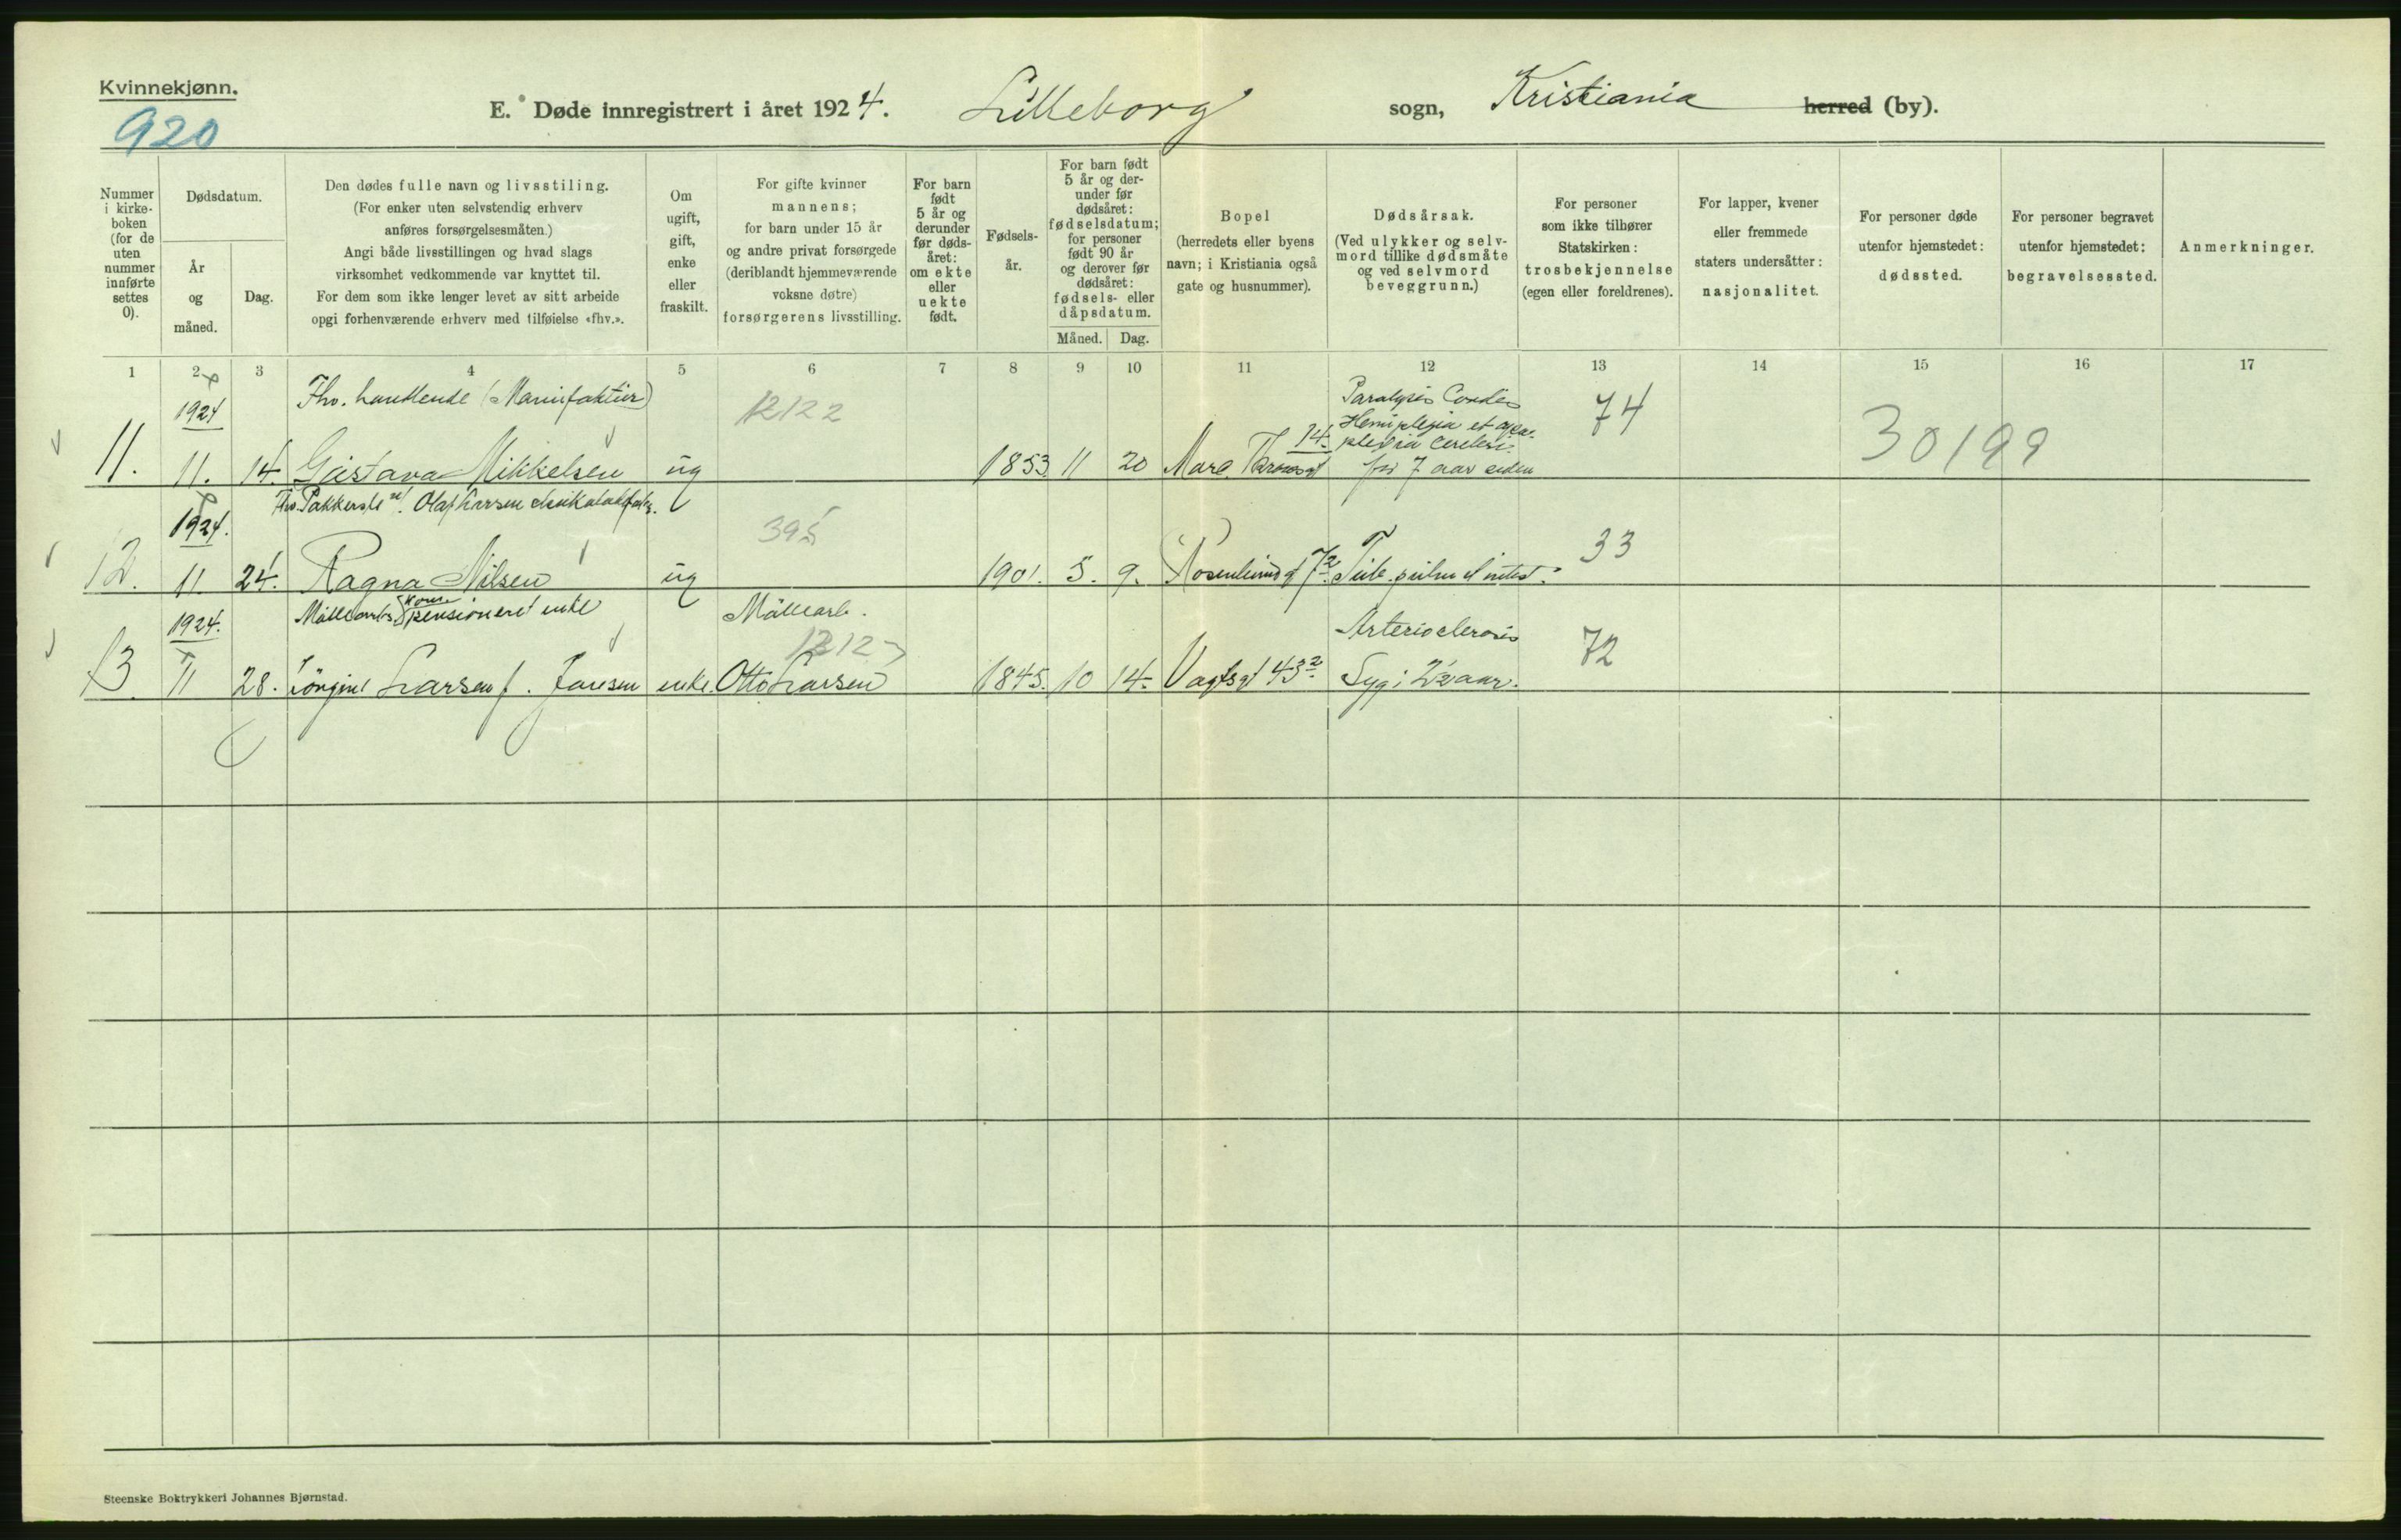 Kvinnekjønn.
920
E. Døde innregistrert i året 1924. Lilleborg sogn, Kristiania herred (by).
Nummer i kirke-boken (for de uten nummer innførte settes 0).
Dødsdatum.
År og måned.
Dag.
Den dødes fulle navn og livsstiling.
(For enker uten selvstendig erhverv
anføres forsørgelsesmåten.)
Angi både livsstillingen og hvad slags
virksomhet vedkommende var knyttet til.
For dem som ikke lenger levet av sitt arbeide
opgi forhenværende erhverv med tilføielse «fhv.».
Om
ugift,
gift,
enke
eller
fraskilt.
For gifte kvinner
mannens;
for barn under 15 år
og andre privat forsørgede
(deriblandt hjemmeværende
voksne døtre)
forsørgerens livsstilling.
For barn
født
5 år og
derunder
før døds-
året:
om ekte
eller
uekte
født.
Fødsels-
år.
For barn født
5 år og der-
under før
dødsåret:
fødselsdatum;
for personer
født 90 år
og derover før
dødsåret:
fødsels- eller
dåpsdatum.
Måned. Dag.
Bopel
(herredets eller byens
navn; i Kristiania også
gate og husnummer).
Dødsårsak.
(Ved ulykker og selv-
mord tillike dødsmåte
og ved selvmord
beveggrunn.)
For personer
som ikke tilhører
Statskirken:
trosbekjennelse
(egen eller foreldrenes).
For lapper, kvener
eller fremmede
staters undersåtter:
nasjonalitet.
For personer døde
utenfor hjemstedet:
dødssted.
For personer begravet
utenfor hjemstedet:
begravelsessted.
Anmerkninger.
1 2 3 4 5 6 7 8 9 10 11 12 13 14 15 16 17
1924 Fhv. handlende (Manufaktur) 12122 Paralysis Cordis 74
Hemiplegia et apo-
plexia cerebri 30199
11. 11. 14. Gustava Mikkelsen ug 1853 11 20 Marc. Thranesgt 14. for 7 aar siden
1924. Olaf Larsen 395 33
12. 11. 24. Ragna Nilsen ug 1901. 5. 9. Rosenlundgt 72 Tub. pulm et intest.
1924. kom. pensioneret enke Møllearb. Arteriosclerosis
12127 72
13. 11 28. Jörgine Larsen f. Jansen enke. Otto Larsen 1845. 10 14. Vogtsgt 43 2 Syg i 2½ aar.
Steenske Boktrykkeri Johannes Bjørnstad.